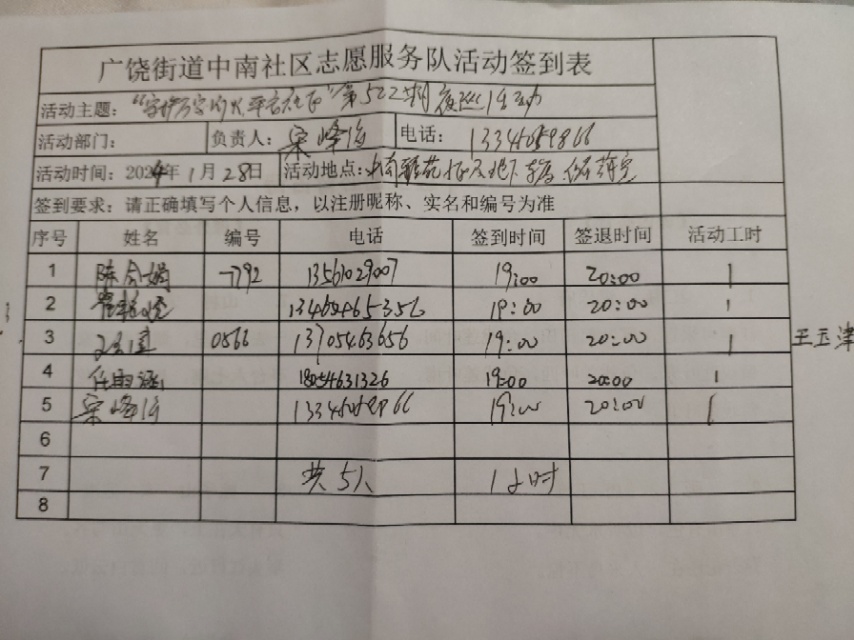 广饶街道中南社区志愿服务队活动签到表
活动主题：“守护万家灯火 平安社区”第522期夜巡活动
活动部门： 负责人：宋峰 电话：
活动时间：2024年1月28日 活动地点：中南
签到要求：请正确填写个人信息，以注册昵称、实名和编号为准
序号 姓名 编号 电话 签到时间 签退时间 活动工时
1 7792 13561029007 19:00 20:00 1
2 19:00 20:00 1
3 0566 13705463656 19:00 20:00 1 王玉津
4 任雨涵 18054631326 19:00 20:00 1
5 宋峰 19:00 20:00 1
6
7 共5人 1小时
8